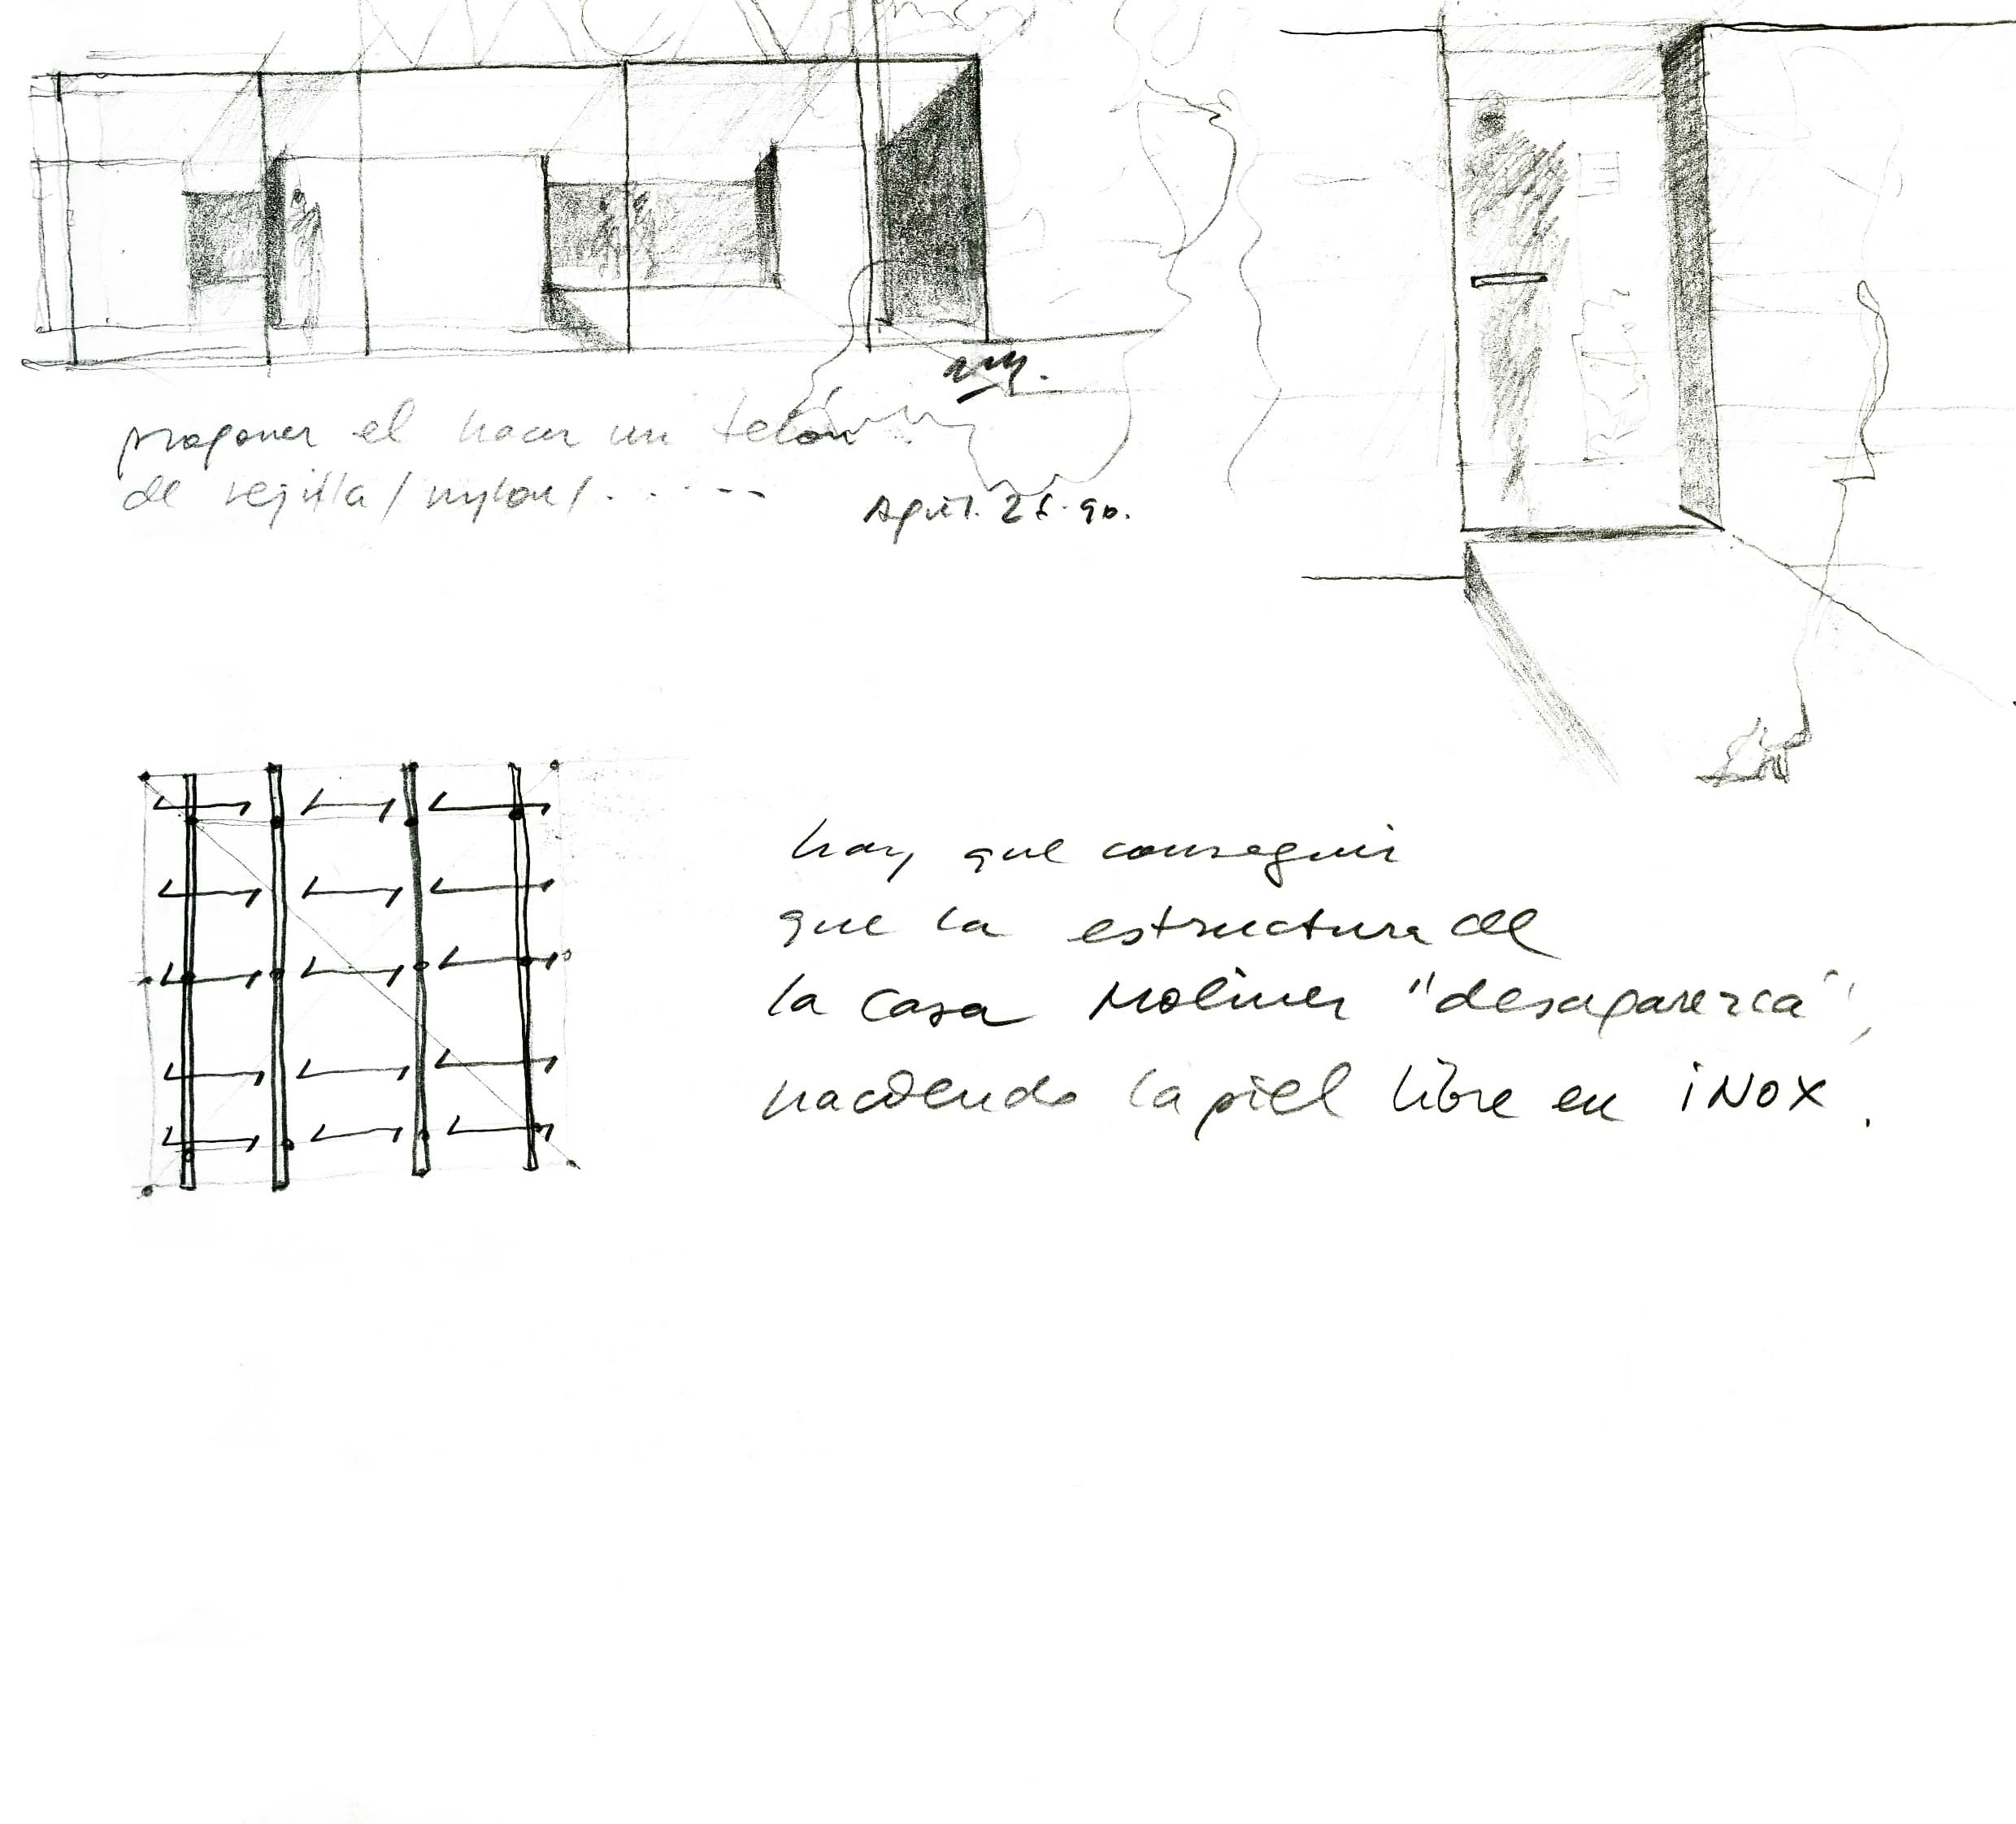 proponer el hacer un telón
de rejilla/nylon/. . . . --
April. 28. 90.
hay que conseguir
que la estructura de
la casa Moliner "desaparezca",
haciendo la piel libre en iNOX.